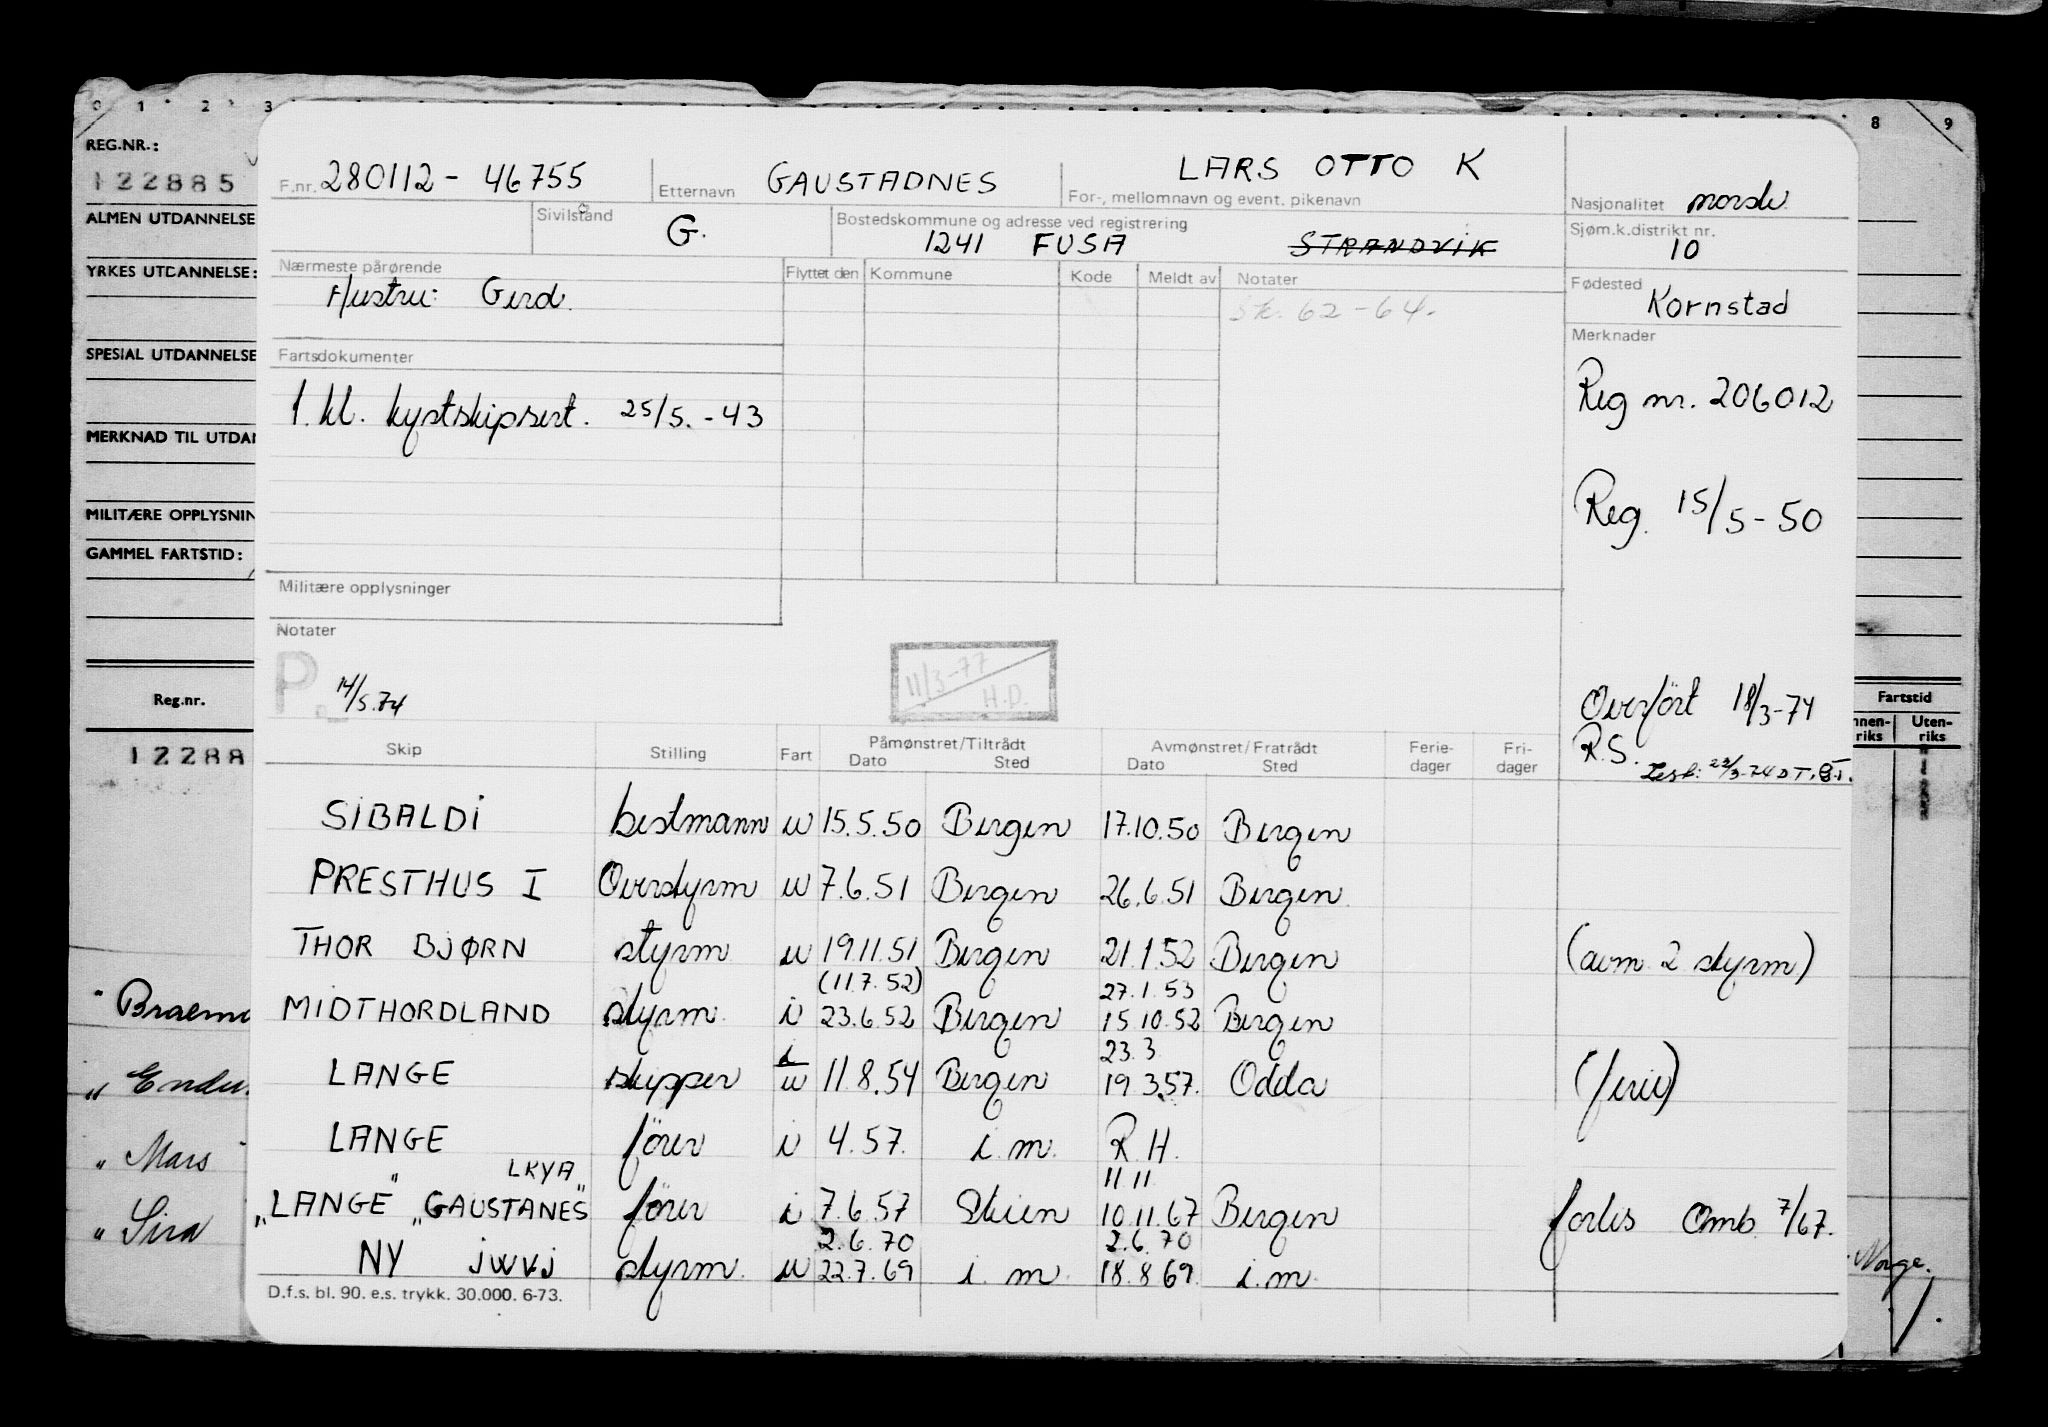 0 1 2 3 8 9
REG.NR.:
122885
ALMEN UTDANNELSE
YRKES UTDANNELSE:
SPESIAL UTDANNELSE
MERKNAD TIL UTDAN
MILITÆRE OPPLYSNIN
GAMMEL FARTSTID:
Reg.nr.
12288
" Braeme
" Endu
" Mars
" Sira
F.nr. 280112 - 46755 Etternavn GAUSTADNES LARS OTTO K
For-, mellomnavn og event. pikenavn
Nasjonalitet norsk
Sivilstand G. Bostedskommune og adresse ved registrering
1241 FUSA STRANDVIK
Sjøm.k.distrikt nr.
10
Nærmeste pårørende
Hustru: Gerd.
Flyttet den Kommune Kode Meldt av Notater
Sk. 62-64.
Fødested
Kornstad
Merknader
Fartsdokumenter
1. kl. kystskipsert. 25/5.-43
Reg nr. 206012
Reg. 15/5-50
Militære opplysninger
Notater
P. 14/5.74
11/3-77
H.D.
Overført 18/3-74
R.S.
22/3-74 D.T.
Skip Stilling Fart Påmønstret/Tiltrådt Avmønstret/Fratrådt Ferie- Fri-
Dato Sted Dato Sted dager dager
SIBALDI bestmann u 15.5.50 Bergen 17.10.50 Bergen
PRESTHUS I Overstyrm u 7.6.51 Bergen 26.6.51 Bergen
THOR BJØRN styrm u 19.11.51 Bergen 21.1.52 Bergen (avm 2 styrm)
(11.7.52) 27.1.53
MIDTHORDLAND styrm. i 23.6.52 Bergen 15.10.52 Bergen
i 23.3
LANGE skipper u 11.8.54 Bergen 19.3.57. Odda (ferie)
LANGE fører i 4.57. i.m. R.H.
LKYA 11.11
"LANGE" "GAUSTANES" fører i 7.6.57 Skien 10.11.67 Bergen forlis Omb. 7/67.
2.6.70 2.6.70
NY JWVJ styrm. u 22.7.69 i.m. 18.8.69 i.m.
D.f.s. bl. 90. e.s. trykk. 30.000. 6-73.
Fartstid
nnen- Uten-
riks riks
Norge.